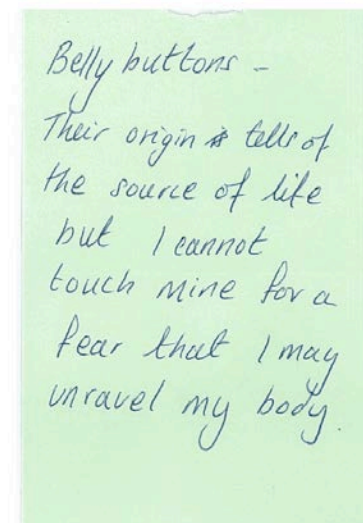 Belly buttons -
Their origin tells of
the source of life
but I cannot
touch mine for a
fear that I may
unravel my body.